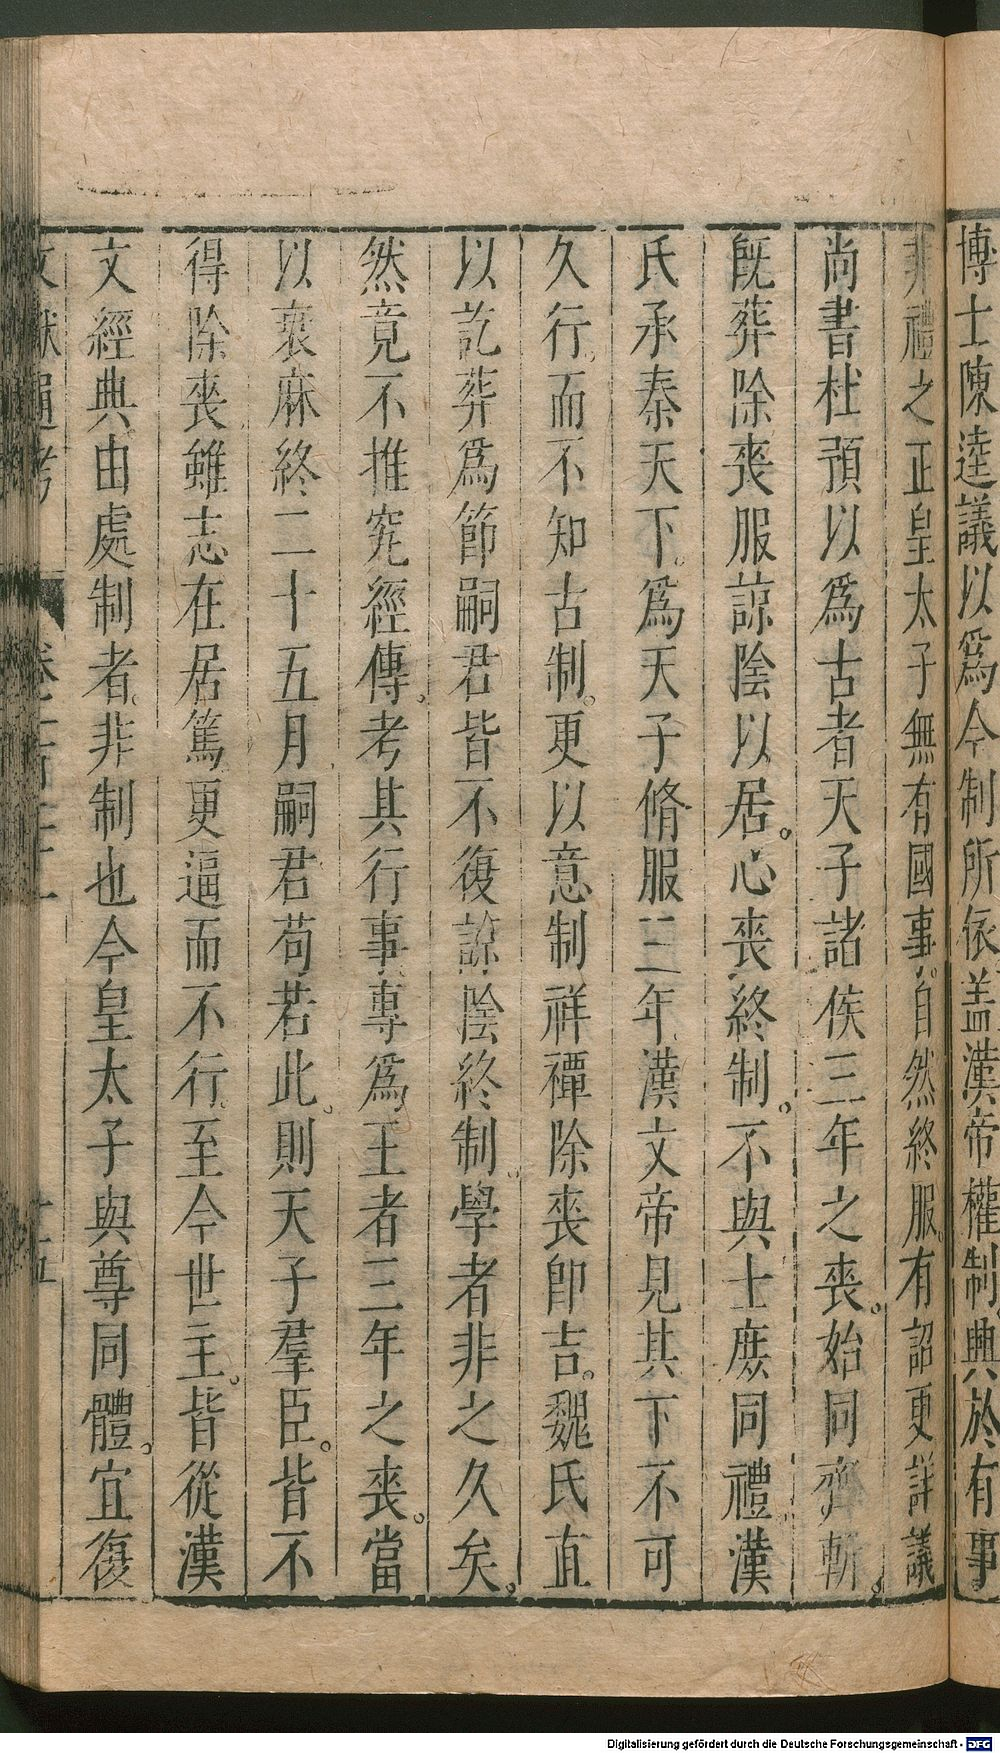 博士陳逵議以爲今制所依盖漢帝權制興於有事
非禮之正皇太子無有國事自然終服有詔更詳議
尚書杜預以爲古者天子諸侯三年之喪。始同齊斬。
旣葬除喪服諒陰以居。心喪終制。不與士庶同禮。漢
氏承秦天下。爲天子脩服三年漢文帝見其下不可
久行。而不知古制。更以意制祥禫除喪卽吉。魏氏直
以訖葬爲節嗣君皆不復諒陰終制。學者非之久矣。
然竟不推究經傳。考其行事專爲王者三年之喪。當
以衰麻終二十五月嗣君苟若此。則天子羣臣。皆不
得除喪雖志在居篤更逼而不行。至今世主。皆從漢
文經典由處制者。非制也今皇太子與尊同體。宜復
文獻通考
Digitalisierung gefördert durch die Deutsche Forschungsgemeinschaft - DFG